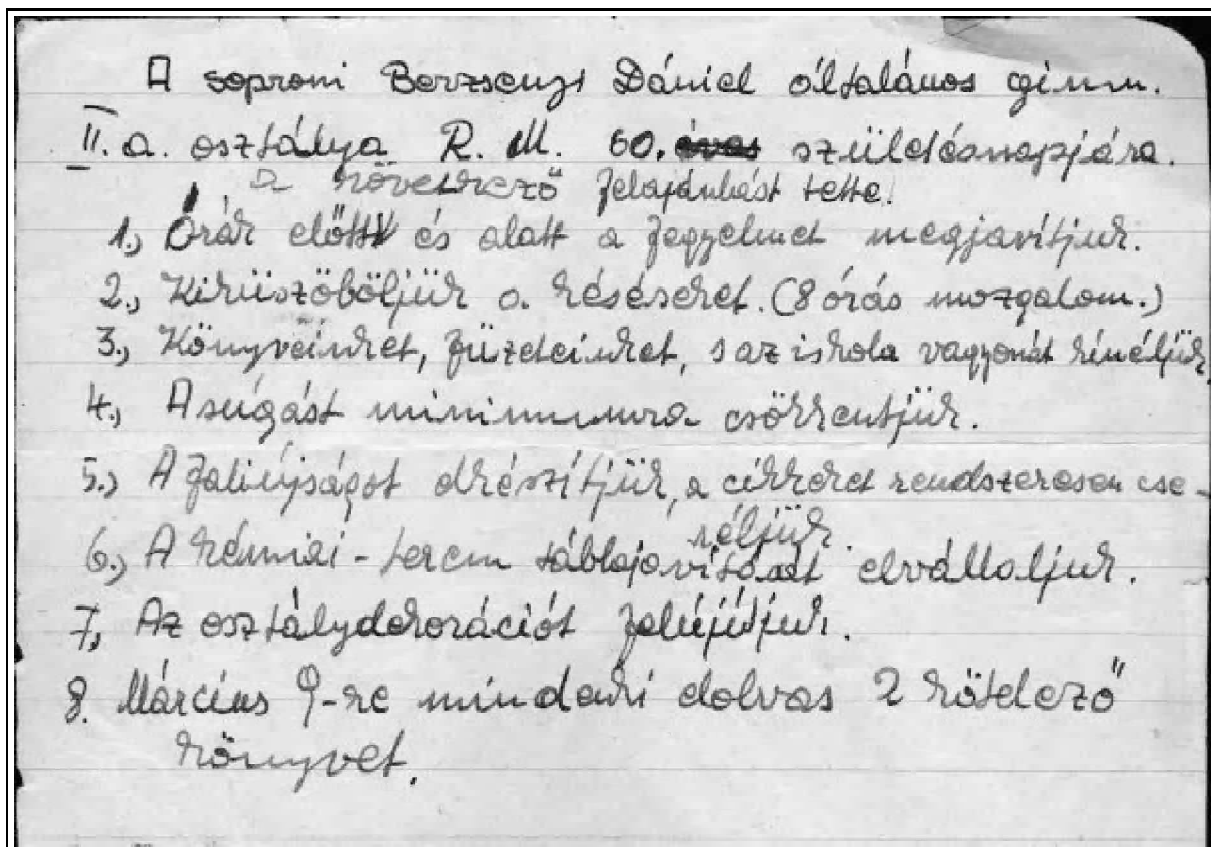 A soproni Berzsenyi Dániel általános gimn.
II. a. osztálya R. M. 60. éves születésnapjára
a következő felajánlást tette.
1., Órák előtt és alatt a fegyelmet megjavítjuk.
2., Kiküszöböljük a késéseket. (8 órás mozgalom.)
3., Könyveinket, füzeteinket, s az iskola vagyonát kíméljük.
4., A súgást minimumra csökkentjük.
5.) A faliújságot elkészítjük, a cikkeket rendszeresen cse-
réljük.
6.) A kémiai-terem táblajavítását elvállaljuk.
7., Az osztálydekorációt felújítjuk.
8. Március 9-re mindenki elolvas 2 kötelező
könyvet.